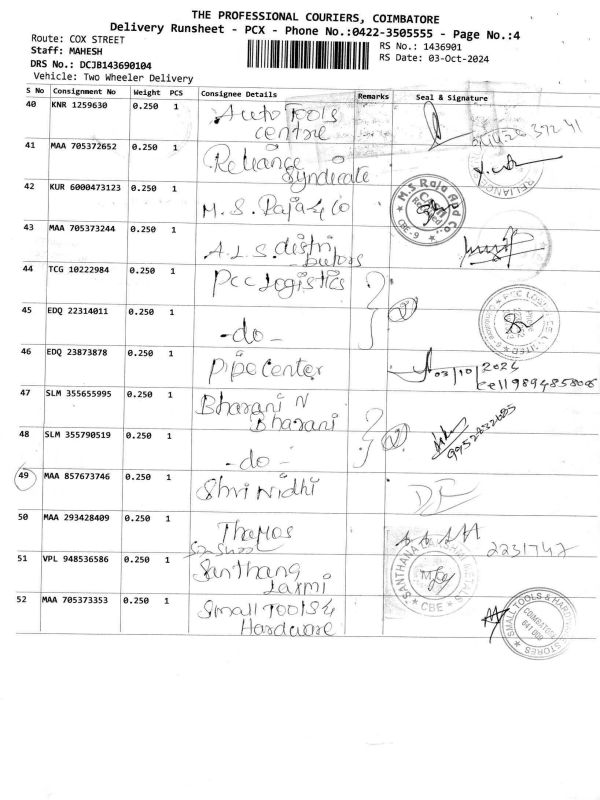 THE PROFESSIONAL COURIERS, COIMBATORE
Delivery Runsheet - PCX - Phone No.:0422-3505555 - Page No.:4
Route: COX STREET
RS No.: 1436901
Staff: MAHESH
RS Date: 03-Oct-2024
DRS No.: DCJB143690104
Vehicle: Two Wheeler Delivery
S No Consignment No Weight PCS Consignee Details Remarks Seal & Signature
40 KNR 1259630 0.250 1 Auto Tools centre
41 MAA 705372652 0.250 1 Reliance Syndicate RELIANCE
42 KUR 6000473123 0.250 1 M.S. Raja & Co M.S Raja And Co., CBE-9
43 MAA 705373244 0.250 1 A.L.S. distri butors
44 TCG 10222984 0.250 1 Pcc Logistics
45 EDQ 22314011 0.250 1 -do-
46 EDQ 23873878 0.250 1 Pipe Center 03/10/2024
cell 9894858006
47 SLM 355655995 0.250 1 Bharani N Bharani
48 SLM 355790519 0.250 1 -do- 9952832685
49 MAA 857673746 0.250 1 Shri Nidhi
50 MAA 293428409 0.250 1 Thomas 2231747
51 VPL 948536586 0.250 1 Santhana Laxmi SANTHANA LAKSHMI METALS CBE
52 MAA 705373353 0.250 1 Small Tools & Hardware SMALL TOOLS & HARDWARE STORES COIMBATORE